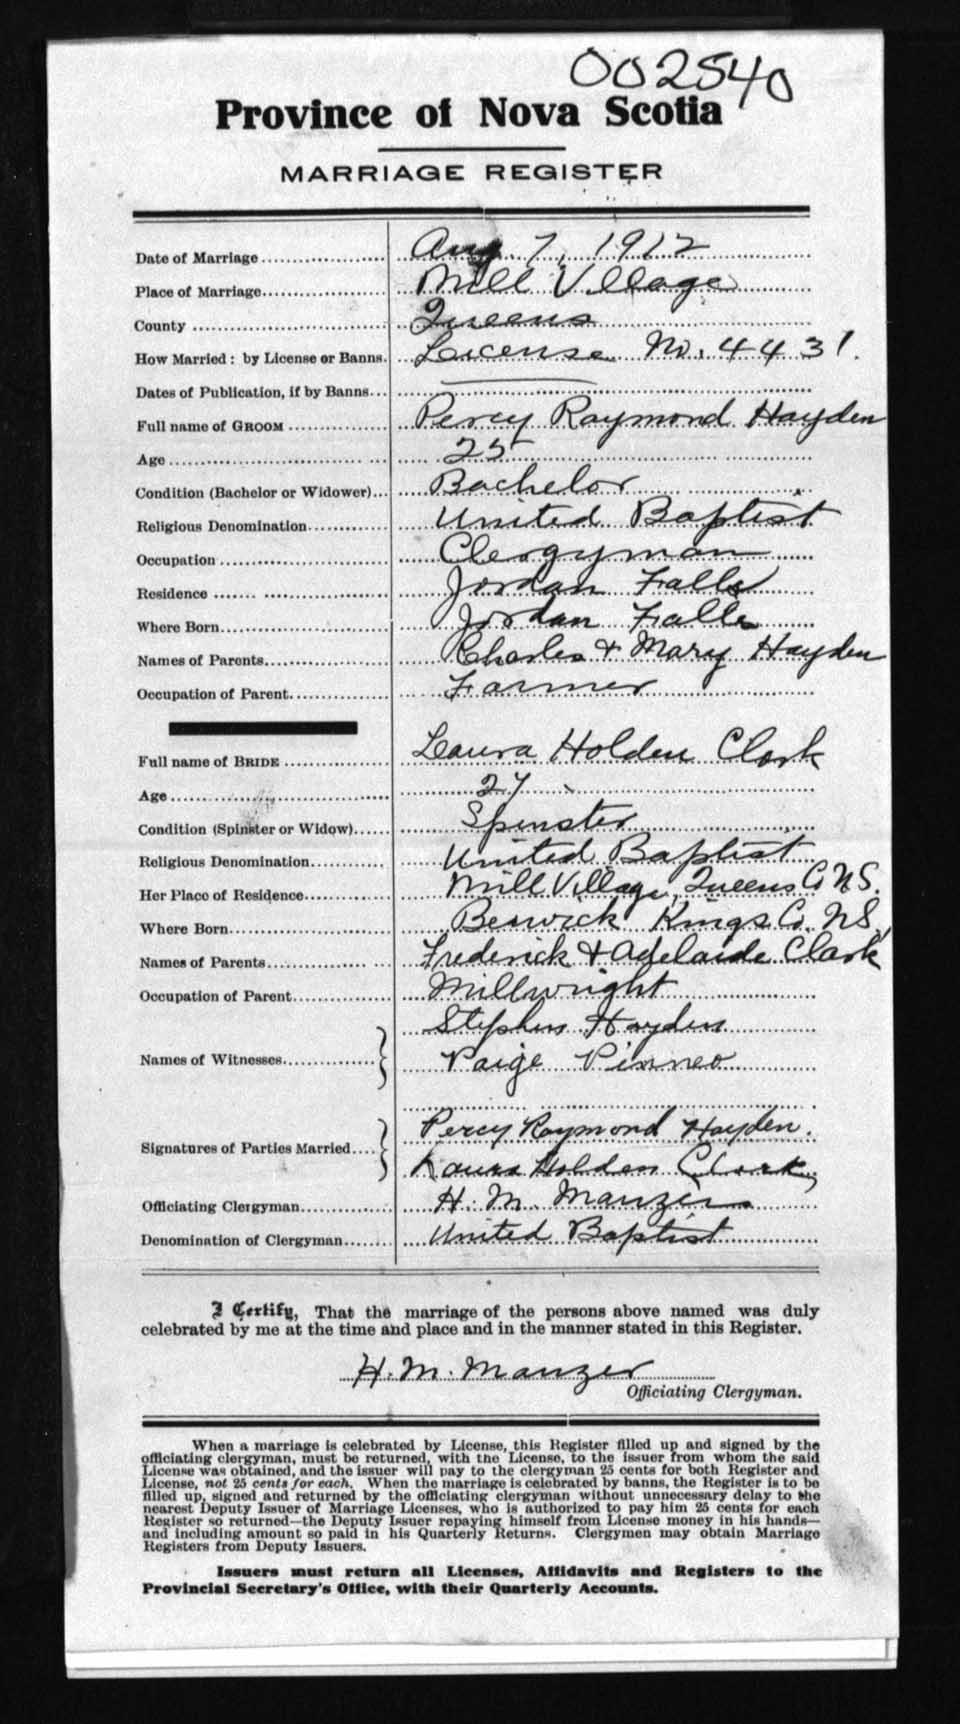 002540
Province of Nova Scotia
MARRIAGE REGISTER
Date of Marriage Aug. 7, 1912
Place of Marriage Mill Village
County Queens
How Married: by License or Banns. License No. 4431.
Dates of Publication, if by Banns
Full name of GROOM Percy Raymond Hayden
Age 25
Condition (Bachelor or Widower) Bachelor
Religious Denomination United Baptist
Occupation Clergyman
Residence Jordan Falls
Where Born Jordan Falls
Names of Parents Charles & Mary Hayden
Occupation of Parent Farmer
Full name of BRIDE Laura Holden Clark
Age 27
Condition (Spinster or Widow) Spinster
Religious Denomination United Baptist
Her Place of Residence Mill Village, Queens Co N.S.
Where Born Berwick Kings Co. N.S.
Names of Parents Frederick & Adelaide Clark
Occupation of Parent Millwright
Stephen Hayden
Names of Witnesses Paige Pinneo
Percy Raymond Hayden.
Signatures of Parties Married
Laura Holden Clark
Officiating Clergyman H. M. Manzer
Denomination of Clergyman United Baptist
I Certify, That the marriage of the persons above named was duly
celebrated by me at the time and place and in the manner stated in this Register.
H. M. Manzer
Officiating Clergyman.
When a marriage is celebrated by License, this Register filled up and signed by the
officiating clergyman, must be returned, with the License, to the issuer from whom the said
License was obtained, and the issuer will pay to the clergyman 25 cents for both Register and
License, not 25 cents for each. When the marriage is celebrated by banns, the Register is to be
filled up, signed and returned by the officiating clergyman without unnecessary delay to the
nearest Deputy Issuer of Marriage Licenses, who is authorized to pay him 25 cents for each
Register so returned—the Deputy Issuer repaying himself from License money in his hands—
and including amount so paid in his Quarterly Returns. Clergymen may obtain Marriage
Registers from Deputy Issuers.
Issuers must return all Licenses, Affidavits and Registers to the
Provincial Secretary's Office, with their Quarterly Accounts.